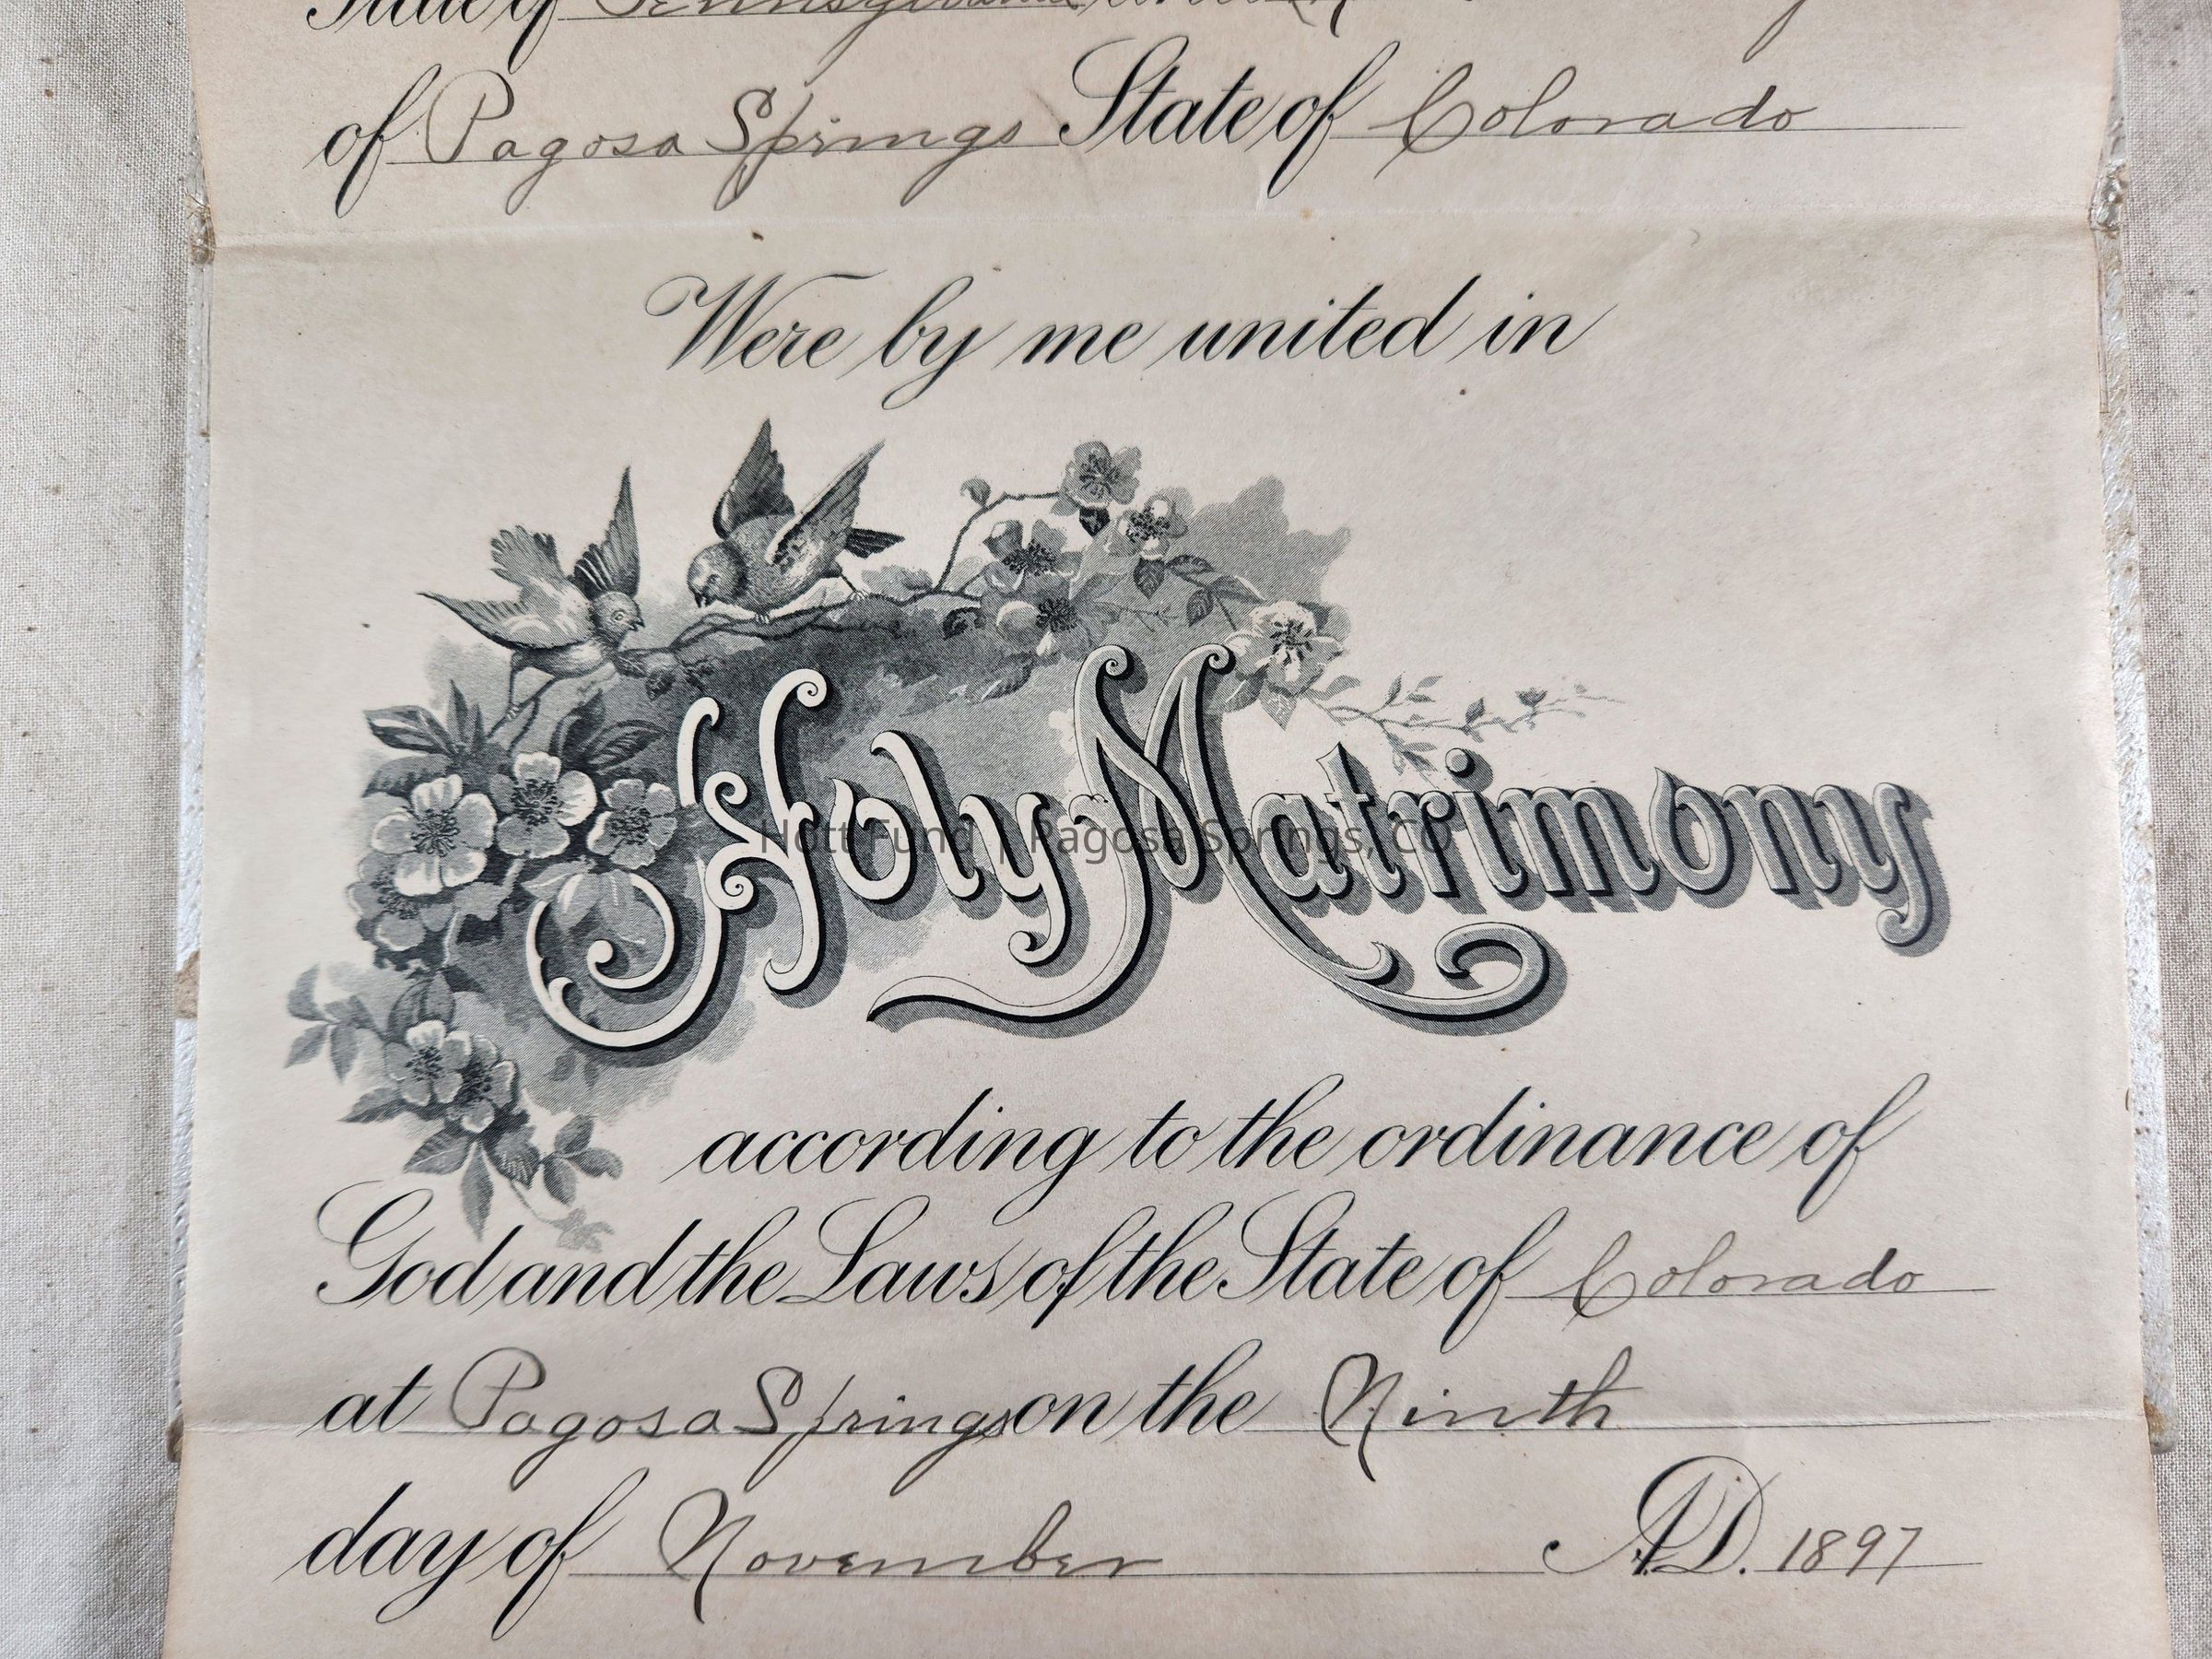 State of Pennsylvania and
of Pagosa Springs State of Colorado
Were by me united in
Holy Matrimony
Hott Fund | Pagosa Springs, CO
according to the ordinance of
God and the Laws of the State of Colorado
at Pagosa Springs on the Ninth
day of November A.D. 1897